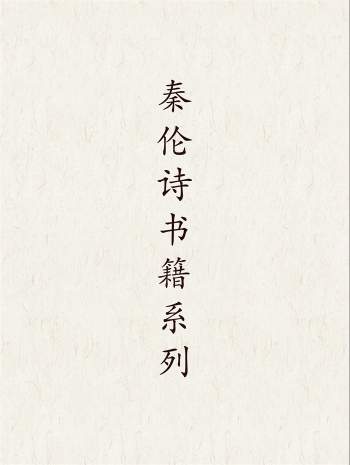 秦伦诗书籍系列